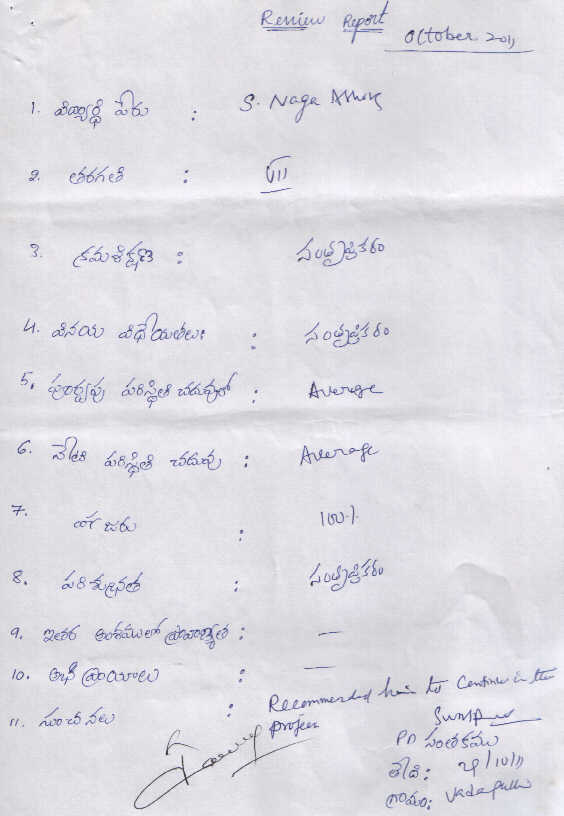 Review Report October 2011
1. విద్యార్థి పేరు : S. Naga Ashok
2. తరగతి : VII
3. క్రమశిక్షణ : సంతృప్తికరం
4. వినయ విధేయతలు : సంతృప్తికరం
5. పూర్వపు పరిస్థితి చదువులో : Average
6. నేటి పరిస్థితి చదువు : Average
7. హాజరు : 100%
8. పరిశుభ్రత : సంతృప్తికరం
9. ఇతర అంశములలో ప్రావీణ్యత : —
10. అభిప్రాయాలు : —
11. సూచనలు : Recommended him to Continue in the
project
PD సంతకము
తేది: 24/10/11
గ్రామం: Vadapalli